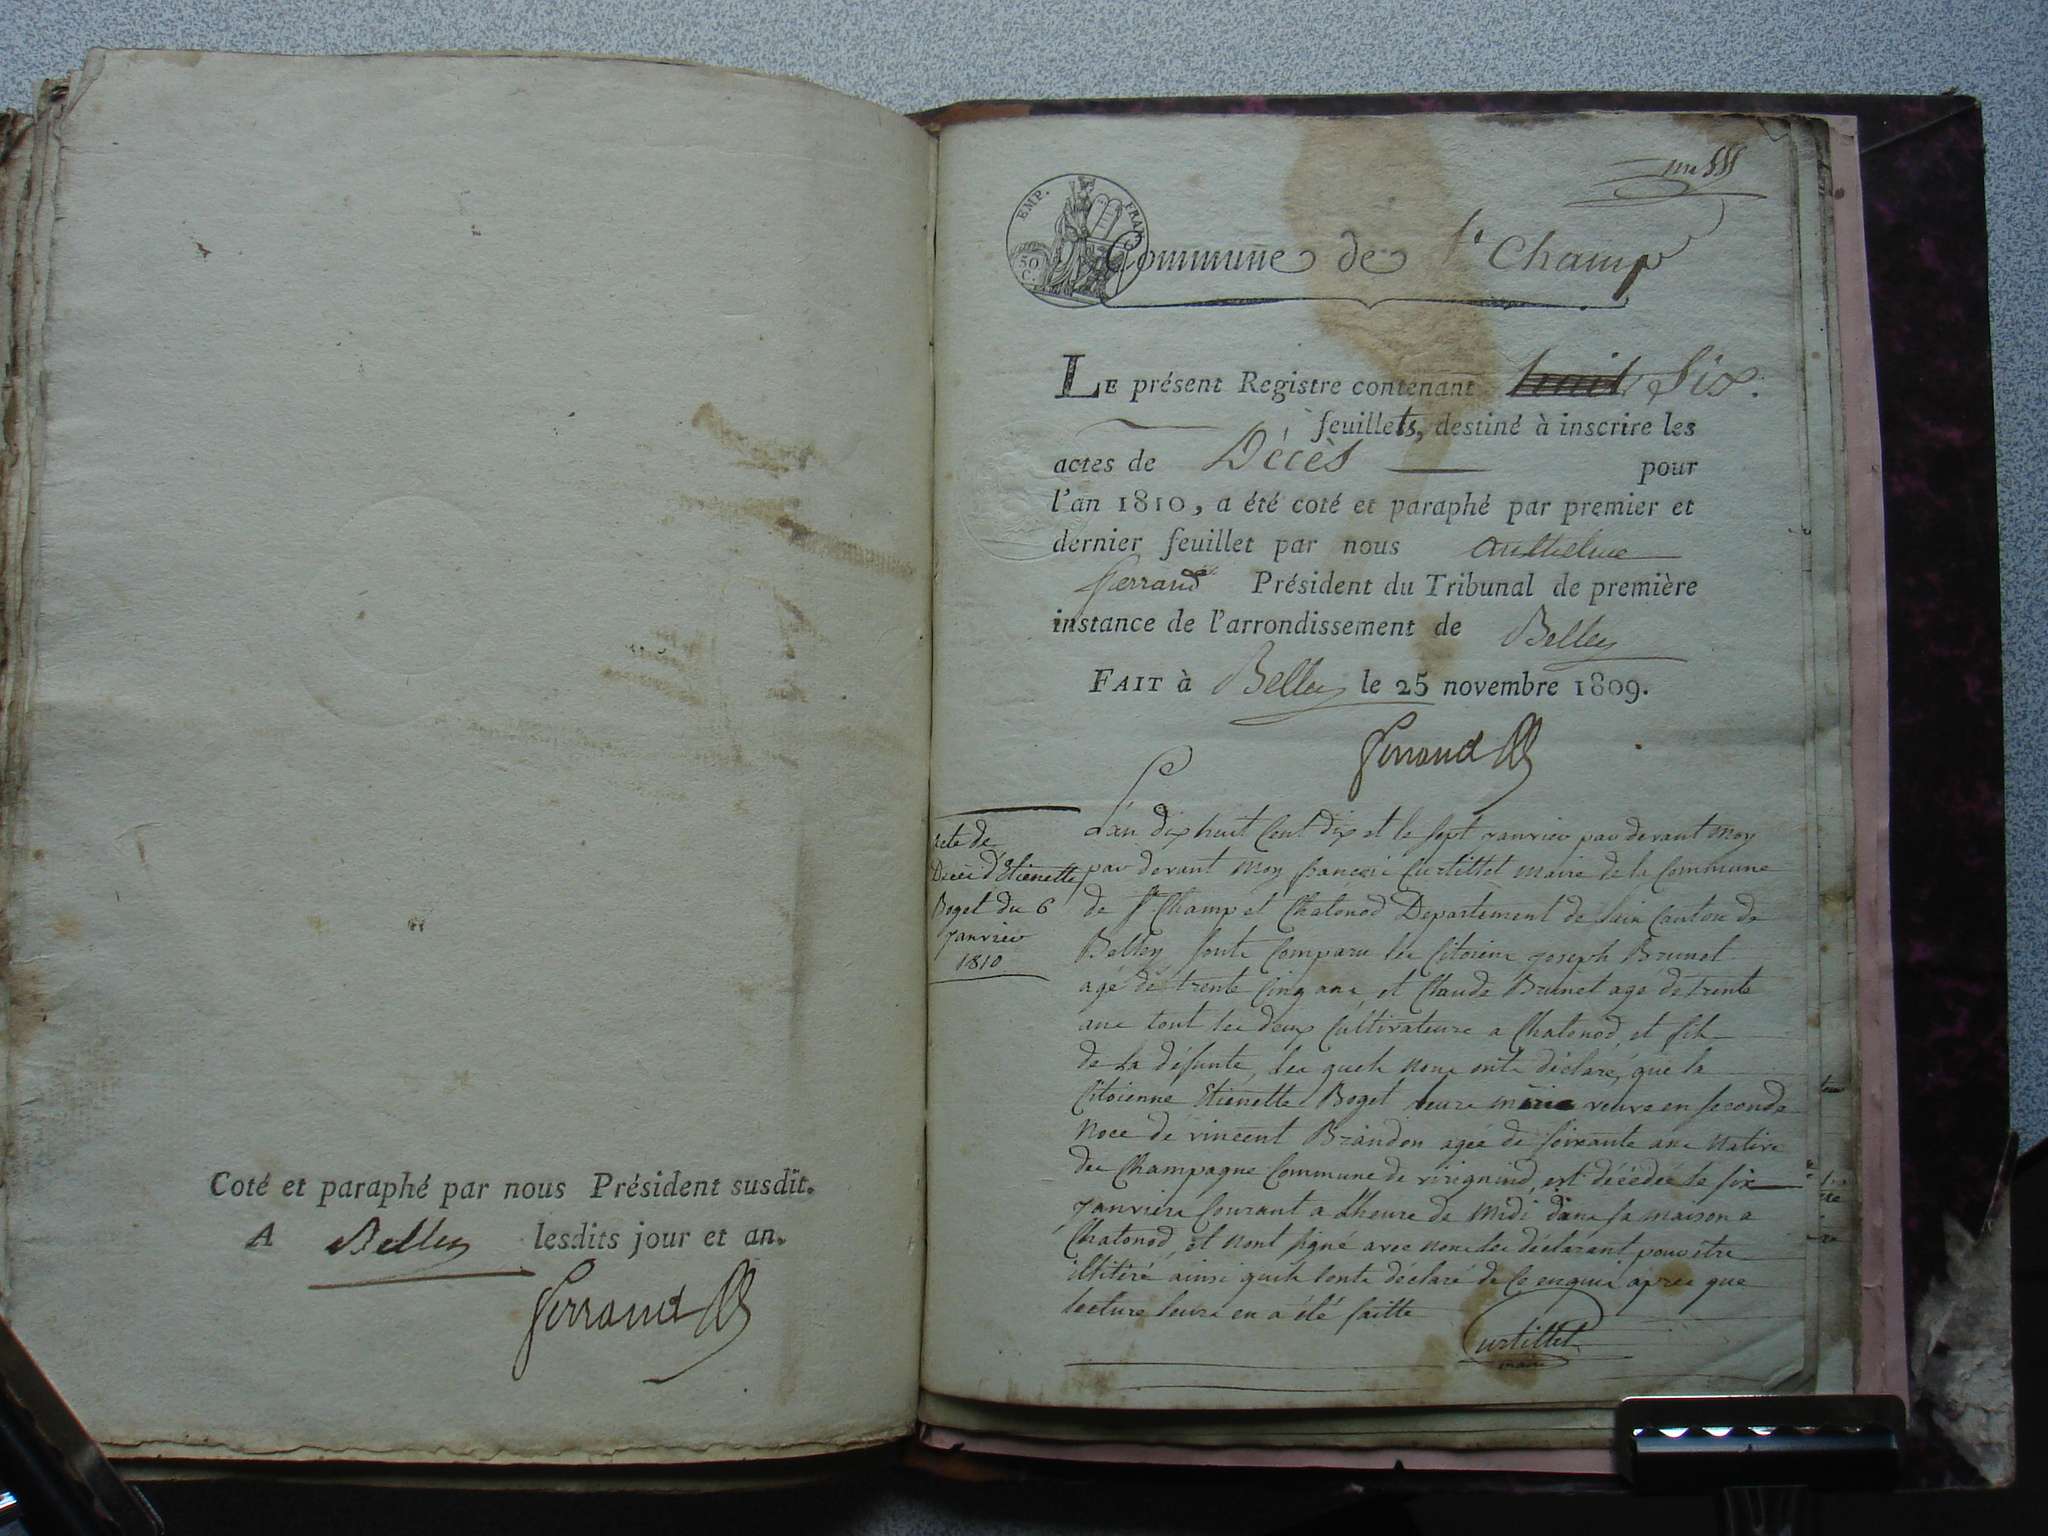 Coté et paraphé par nous Président susdit.
A Belley lesdits jour et an.
Ferrand
EMP. FRAN.
50 C.
Commune de St Champ
LE présent Registre contenant huit Six
feuillets, destiné à inscrire les
actes de Décès pour
l'an 1810, a été coté et paraphé par premier et
dernier feuillet par nous anthelme
ferrand Président du Tribunal de première
instance de l'arrondissement de Belley
FAIT à Belley le 25 novembre 1809.
Ferrand
acte de
Décé d'Etienette
Boget du 6
janvier
1810
L'an dix huit Cent dix et le sept janvier par devant moy
par devant moy françoi Curtillet maire de la Commune
de St Champ et Chatonod Departement de lain Canton de
Belley sont Comparu les Citoiens joseph Brunet
agé de trente Cinq ans et Claude Brunet agé de trente
ans tout les deux Cultivateurs a Chatonod, et fils
de la défunte, les quels nous onts déclaré, que la
Citoienne Etienette Boget leurs mère veuve en seconde
Noce de vincent Brandon agée de soixante ans native
de Champagne Commune de virignind, est décédée le six
janviers Courant a l'heure de midi dans sa maison a
Chatonod, et nont signé avec nous les déclarant pour être
illitéré ainsi quils lonts déclaré de Ce enquis après que
lecture leurs en a été faitte
Curtillet
maire